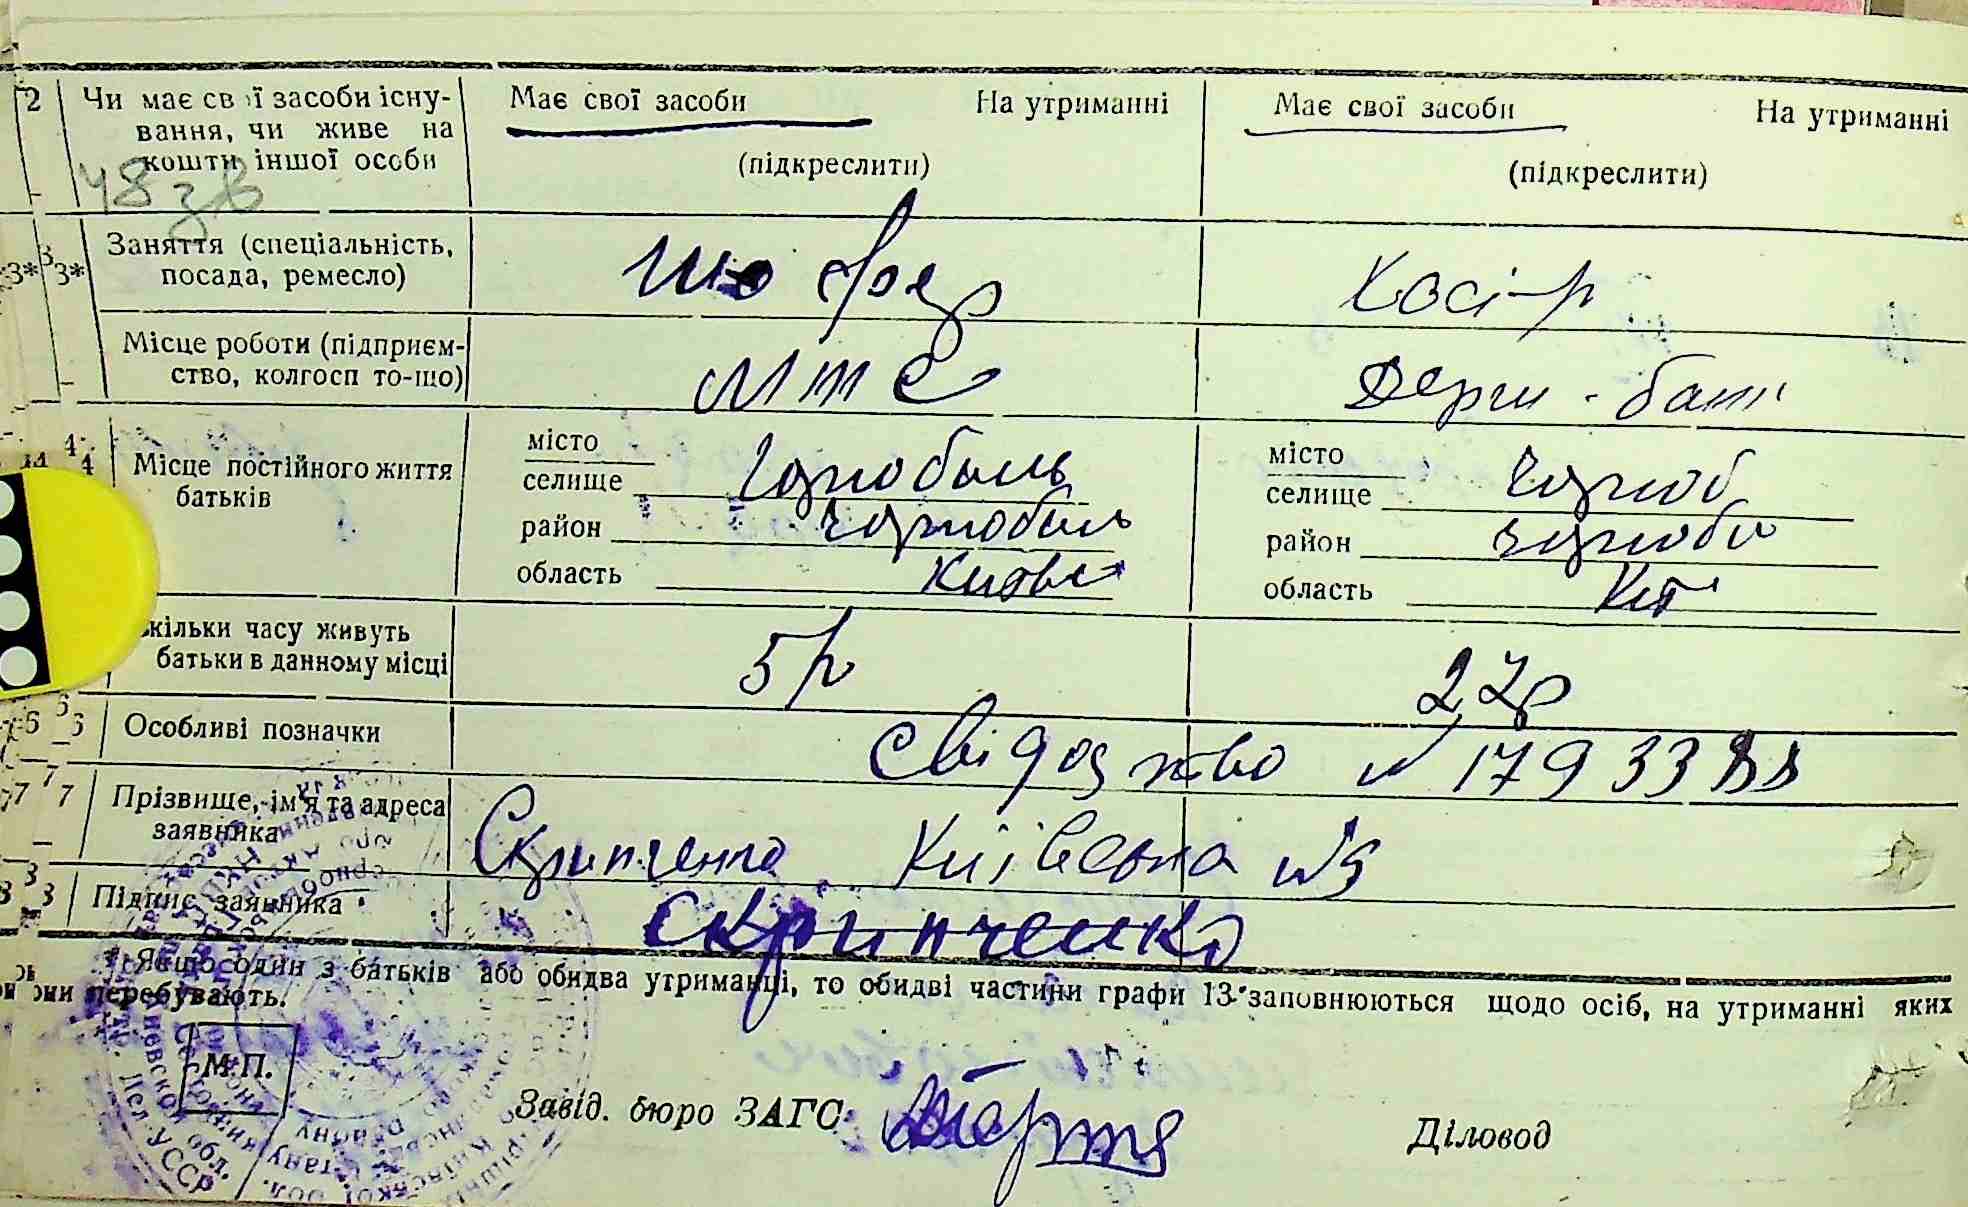 2 Чи має свої засоби існу- Має свої засоби На утриманні Має свої засоби На утриманні
вання, чи живе на
кошти іншої особи (підкреслити) (підкреслити)
48 зв
3* 3* Заняття (спеціальність, шофер Касір
посада, ремесло)
Місце роботи (підприєм- МТС Держ-банк
ство, колгосп то-що)
4 Місце постійного життя місто місто
батьків селище Чорнобиль селище Чорноб
район Чорнобиль район Чорноби
область Київс область Киї
скільки часу живуть 5р 22р
батьки в данному місці
6 Особливі позначки Свідоцтво № 179 33
7 Прізвище, ім'я та адреса Скрипченко Київська №5
заявника
Підпис заявника Скрипченко
* Якщо один з батьків або обидва утриманці, то обидві частини графи 13 заповнюються щодо осіб, на утриманні яких
вони перебувають.
М.П.
Завід. бюро ЗАГС Діловод